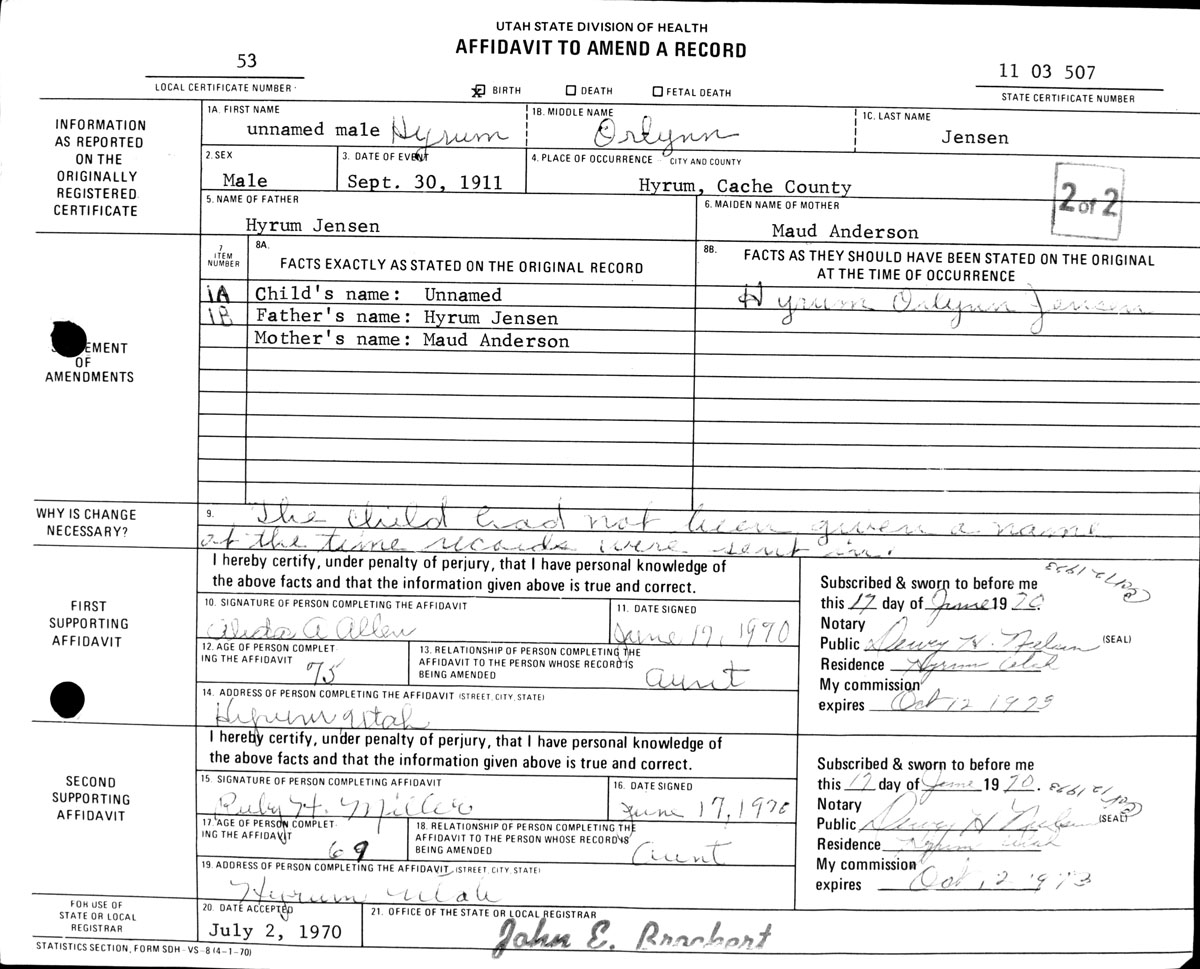 UTAH STATE DIVISION OF HEALTH
AFFIDAVIT TO AMEND A RECORD
53
LOCAL CERTIFICATE NUMBER
☒ BIRTH ☐ DEATH ☐ FETAL DEATH
11 03 507
STATE CERTIFICATE NUMBER
INFORMATION
AS REPORTED
ON THE
ORIGINALLY
REGISTERED
CERTIFICATE
1A. FIRST NAME
unnamed male Hyrum
1B. MIDDLE NAME
Orlynn
1C. LAST NAME
Jensen
2. SEX
Male
3. DATE OF EVENT
Sept. 30, 1911
4. PLACE OF OCCURRENCE - CITY AND COUNTY
Hyrum, Cache County
2 of 2
5. NAME OF FATHER
Hyrum Jensen
6. MAIDEN NAME OF MOTHER
Maud Anderson
EMENT
OF
AMENDMENTS
7
ITEM
NUMBER
8A.
FACTS EXACTLY AS STATED ON THE ORIGINAL RECORD
8B.
FACTS AS THEY SHOULD HAVE BEEN STATED ON THE ORIGINAL
AT THE TIME OF OCCURRENCE
1A Child's name: Unnamed
Hyrum Orlynn Jensen
1B Father's name: Hyrum Jensen
Mother's name: Maud Anderson
WHY IS CHANGE
NECESSARY?
9. The child had not been given a name
at the time records were sent in.
FIRST
SUPPORTING
AFFIDAVIT
I hereby certify, under penalty of perjury, that I have personal knowledge of
the above facts and that the information given above is true and correct.
10. SIGNATURE OF PERSON COMPLETING THE AFFIDAVIT
Alida A Allen
11. DATE SIGNED
June 17, 1970
12. AGE OF PERSON COMPLET-
ING THE AFFIDAVIT
75
13. RELATIONSHIP OF PERSON COMPLETING THE
AFFIDAVIT TO THE PERSON WHOSE RECORD IS
BEING AMENDED
aunt
14. ADDRESS OF PERSON COMPLETING THE AFFIDAVIT (STREET, CITY, STATE)
Hyrum Utah
Subscribed & sworn to before me
this 17 day of June 1970
Notary
Public Dewey H. Nielsen (SEAL)
Residence Hyrum Utah
My commission
expires Oct 12 1973
Oct 12 1973
SECOND
SUPPORTING
AFFIDAVIT
I hereby certify, under penalty of perjury, that I have personal knowledge of
the above facts and that the information given above is true and correct.
15. SIGNATURE OF PERSON COMPLETING AFFIDAVIT
Ruby H. Miller
16. DATE SIGNED
June 17, 1970
17. AGE OF PERSON COMPLET-
ING THE AFFIDAVIT
69
18. RELATIONSHIP OF PERSON COMPLETING THE
AFFIDAVIT TO THE PERSON WHOSE RECORD IS
BEING AMENDED
aunt
19. ADDRESS OF PERSON COMPLETING THE AFFIDAVIT (STREET, CITY, STATE)
Hyrum Utah
Subscribed & sworn to before me
this 17 day of June 1970.
Notary
Public Dewey H Nielsen (SEAL)
Residence Hyrum Utah
My commission
expires Oct 12 1973
Oct 12 1973
FOR USE OF
STATE OR LOCAL
REGISTRAR
20. DATE ACCEPTED
July 2, 1970
21. OFFICE OF THE STATE OR LOCAL REGISTRAR
John E. Brockert
STATISTICS SECTION, FORM SDH-VS-8 (4-1-70)